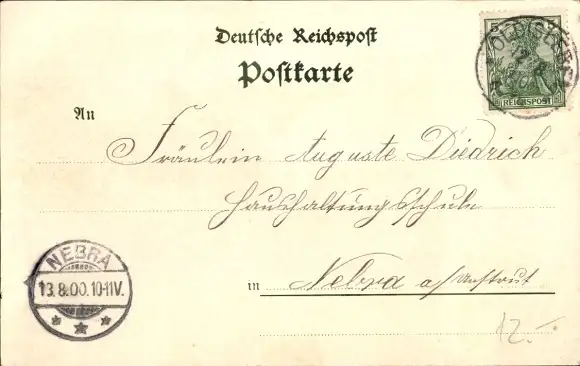 Deutsche Reichspost
Postkarte
5 5
REICHSPOST
An
Fräulein Auguste Diedrich
Haushaltungsschule
in Nebra a/Unstrut
NEBRA
13.8.00.10-11V.
12.-